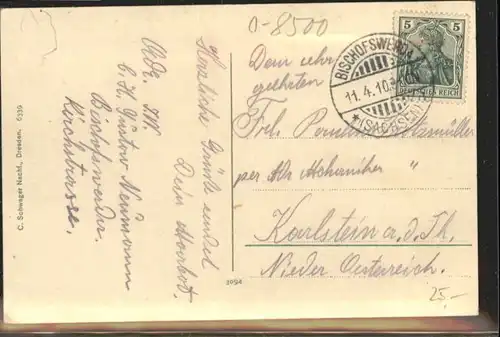 0-8500
Herzliche Grüße sendet
Dein
Adr. I.W.
b. H. Gustav Neumann
Bischofswerda.
Kirchstrasse.
C. Schwager Nachf., Dresden. 6239
3094
5 5
DEUTSCHES REICH
BISCHOFSWERDA
11.4.10.
*(SACHSEN)
Dem sehr
geehrten
Frl.
per Adr. Mechaniker "
Karlstein a. d. Th.
Nieder Oesterreich.
25,-